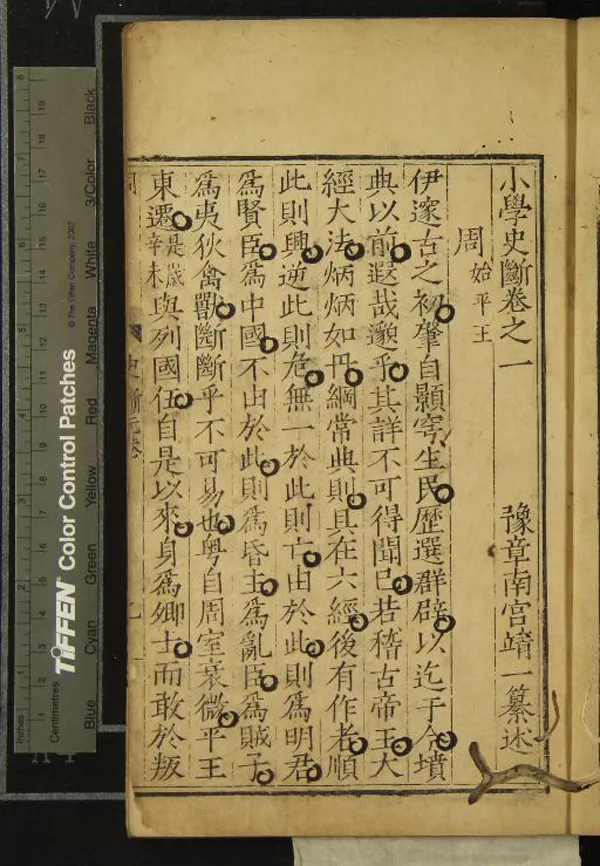 小學史斷卷之一
豫章南宮靖一纂述
周 始平王
伊邃古之初肇自顥穹生民歷選群辟以迄于今墳
典以前遐哉邈乎其詳不可得聞已若稽古帝王大
經大法炳炳如丹綱常典則具在六經後有作者順
此則興逆此則危無一於此則亡由於此則爲明君
爲賢臣爲中國不由於此則爲昏主爲亂臣爲賊子
爲夷狄禽獸斷斷乎不可易也粵自周室衰微平王
東遷是歲辛未與列國伍自是以來身爲鄉士而敢於叛
史斷元卷
TIFFEN Color Control Patches
© The Tiffen Company, 2007
Inches
Centimetres
Blue Cyan Green Yellow Red Magenta White 3/Color Black